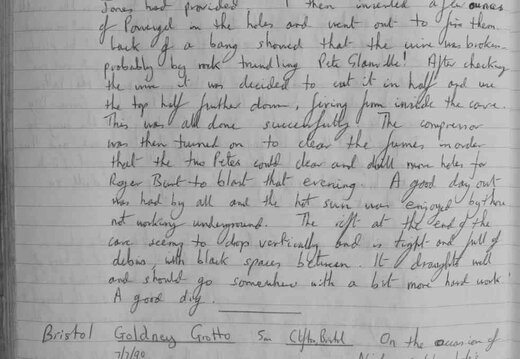 Jones had provided. I then inserted a few ounces
of Powergel in the holes and went out to fire them.
Lack of a bang showed that the wire was broken
probably by rock trundling Pete Glanville! After checking
the wire it was decided to cut it in half and use
the top half further down, firing from inside the cave.
This was all done successfully. The compressor
was then turned on to clear the fumes in order
that the two Petes could clear and drill more holes for
Roger Burt to blast that evening. A good day out
was had by all and the hot sun was enjoyed by those
not working underground. The rift at the end of the
cave seems to drop vertically and is tight and full of
debris, with black spaces between. It draughts well
and should go somewhere with a bit more hard work!
A good dig.
Bristol Goldney Grotto 5m Clifton, Bristol On the occasion of
7/7/90